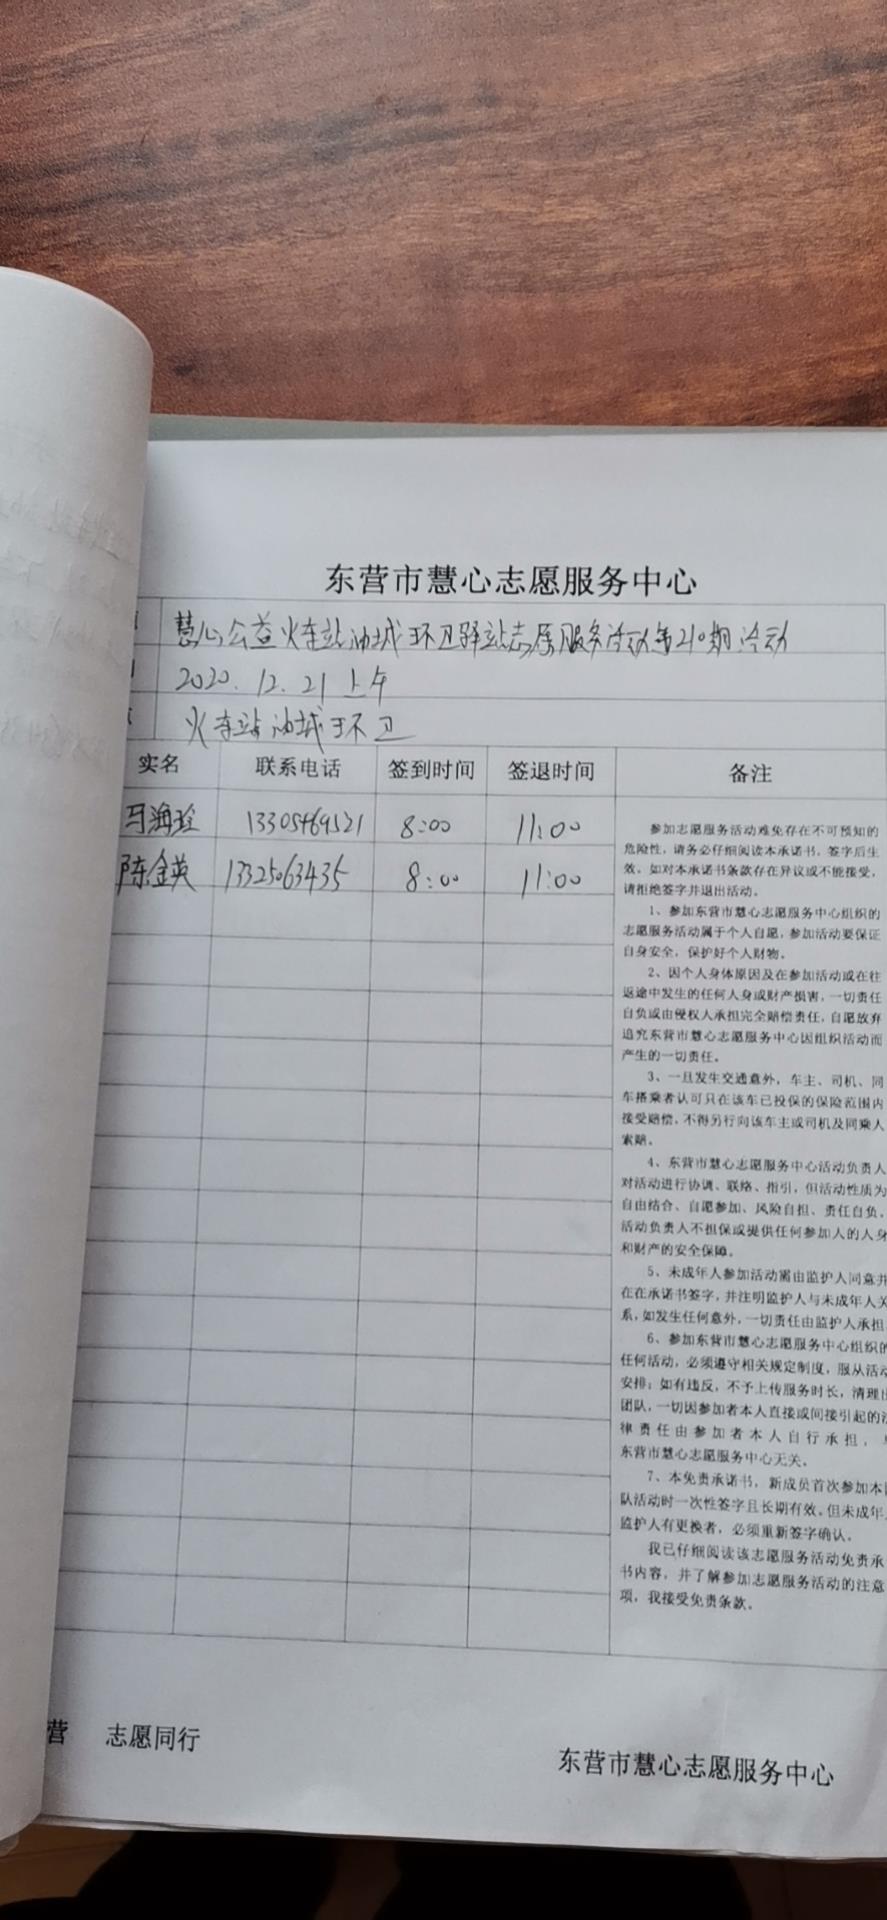 东营市慧心志愿服务中心
慧心公益火车站油城环卫驿站志愿服务活动第210期活动
2020.12.21上午
火车站油城环卫
实名 联系电话 签到时间 签退时间 备注
马海玲 13305469521 8:00 11:00
陈金英 13325063435 8:00 11:00
参加志愿服务活动难免存在不可预知的
危险性，请务必仔细阅读本承诺书，签字后生
效。如对本承诺书条款存在异议或不能接受，
请拒绝签字并退出活动。
1、参加东营市慧心志愿服务中心组织的
志愿服务活动属于个人自愿，参加活动要保证
自身安全，保护好个人财物。
2、因个人身体原因及在参加活动或在往
返途中发生的任何人身或财产损害，一切责任
自负或由侵权人承担完全赔偿责任，自愿放弃
追究东营市慧心志愿服务中心因组织活动而
产生的一切责任。
3、一旦发生交通意外，车主、司机、同
车搭乘者认可只在该车已投保的保险范围内
接受赔偿，不得另行向该车主或司机及同乘人
索赔。
4、东营市慧心志愿服务中心活动负责人
对活动进行协调、联络、指引，但活动性质为
自由结合、自愿参加、风险自担、责任自负。
活动负责人不担保或提供任何参加人的人身
和财产的安全保障。
5、未成年人参加活动需由监护人同意并
在在承诺书签字，并注明监护人与未成年人关
系，如发生任何意外，一切责任由监护人承担
6、参加东营市慧心志愿服务中心组织的
任何活动，必须遵守相关规定制度，服从活动
安排；如有违反，不予上传服务时长，清理出
团队，一切因参加者本人直接或间接引起的法
律责任由参加者本人自行承担，
东营市慧心志愿服务中心无关。
7、本免责承诺书，新成员首次参加本团
队活动时一次性签字且长期有效。但未成年人
监护人有更换者，必须重新签字确认。
我已仔细阅读该志愿服务活动免责承
书内容，并了解参加志愿服务活动的注意
项，我接受免责条款。
营 志愿同行
东营市慧心志愿服务中心